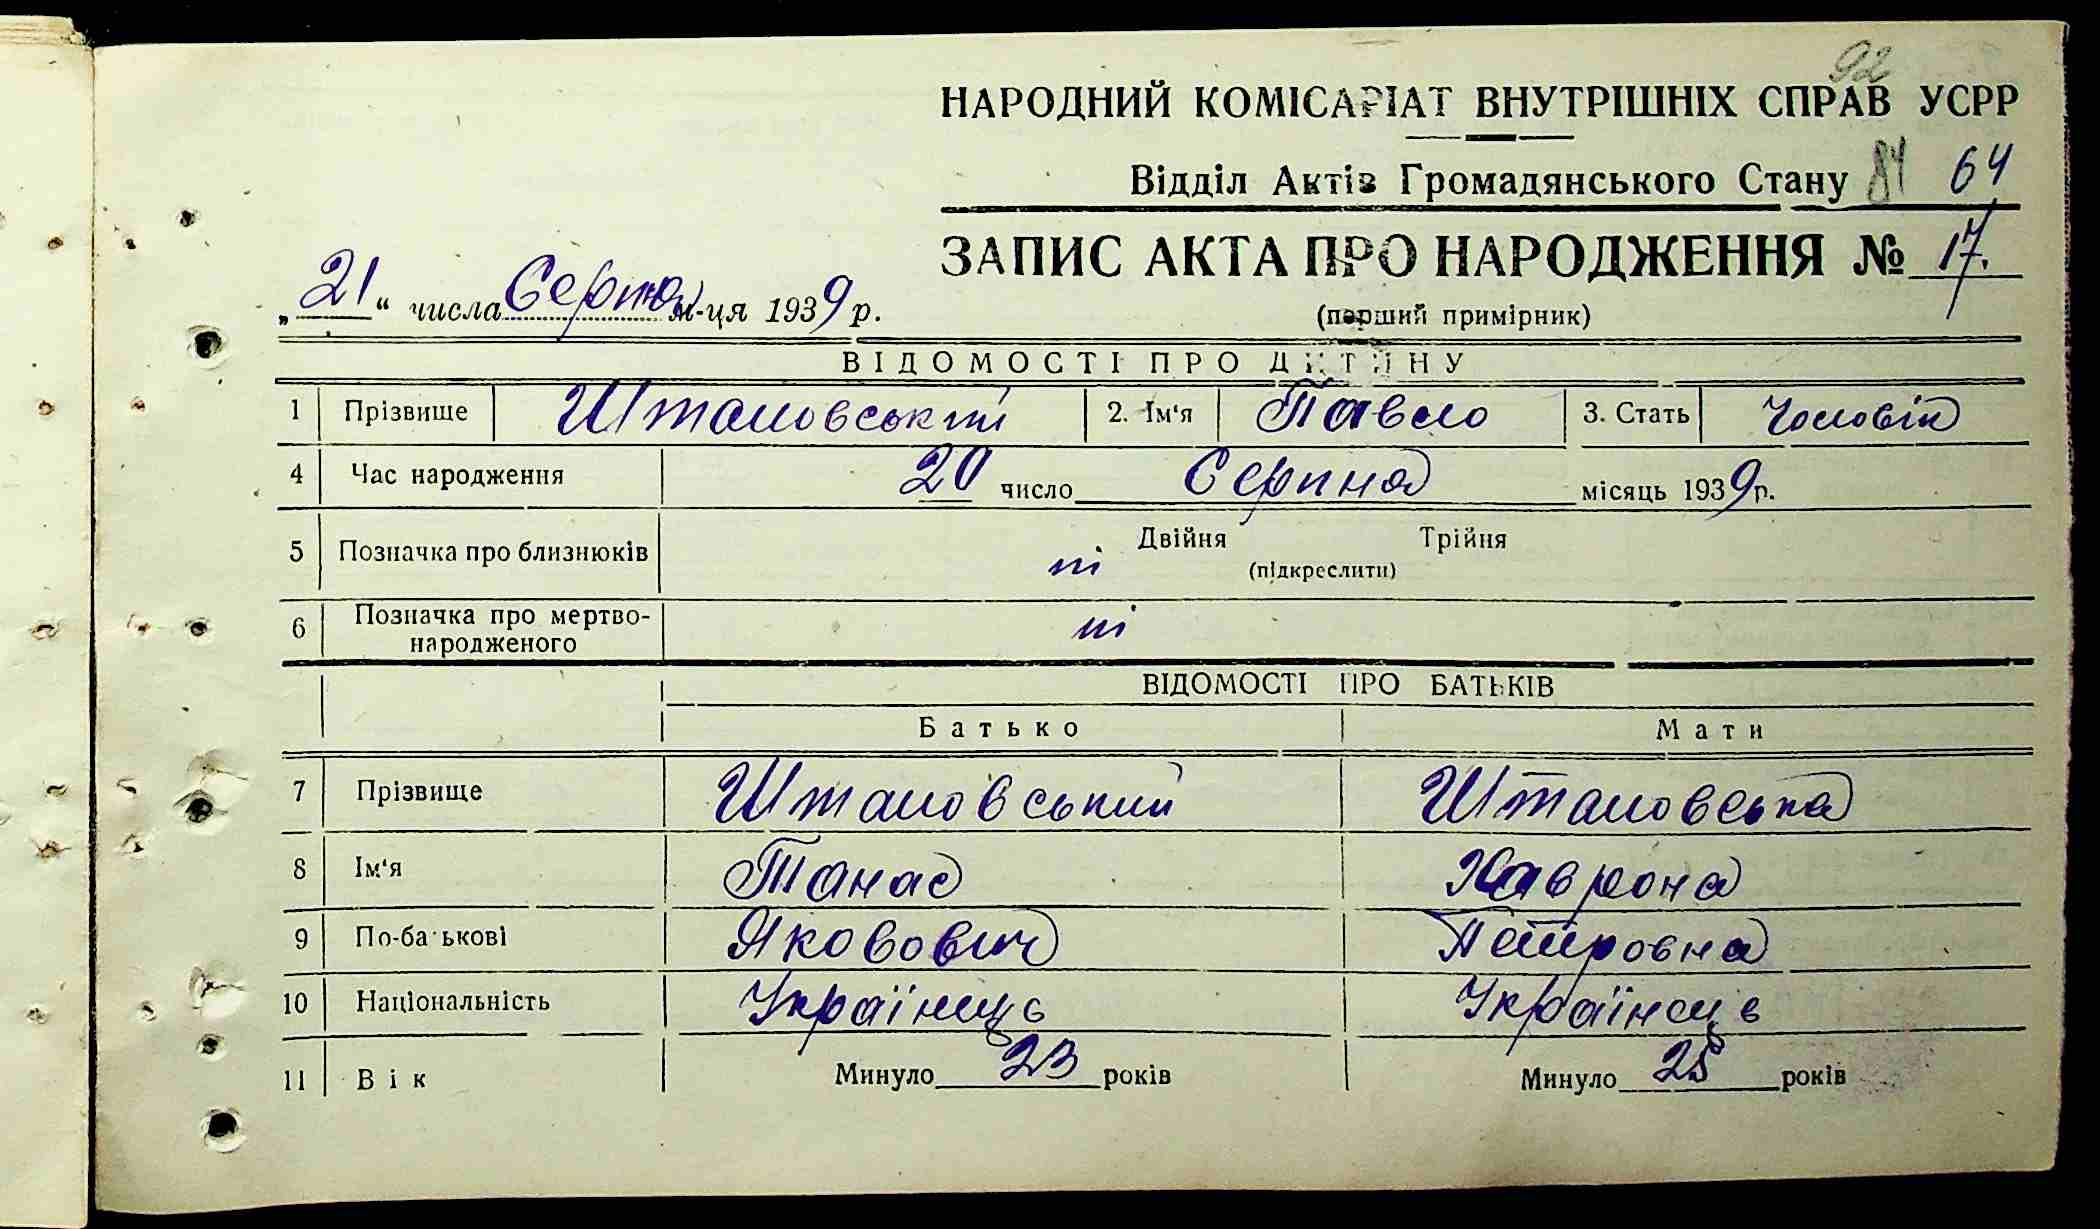 92
НАРОДНИЙ КОМІСАРІАТ ВНУТРІШНІХ СПРАВ УСРР
Відділ Актів Громадянського Стану 84 64
ЗАПИС АКТА ПРО НАРОДЖЕННЯ № 17.
„21" числа Серпня м-ця 1939 р.
(перший примірник)
ВІДОМОСТІ ПРО ДИТИНУ
1 Прізвище Штамовський 2. Ім'я Павло 3. Стать Чоловік
4 Час народження 20 число Серпня місяць 1939 р.
5 Позначка про близнюків ні Двійня Трійня
(підкреслити)
6 Позначка про мертво-
народженого ні
ВІДОМОСТІ ПРО БАТЬКІВ
Батько Мати
7 Прізвище Штамовський Штамовська
8 Ім'я Танас Хаврона
9 По-батькові Якович Петровна
10 Національність Українець Українець
11 Вік Минуло 23 років Минуло 25 років